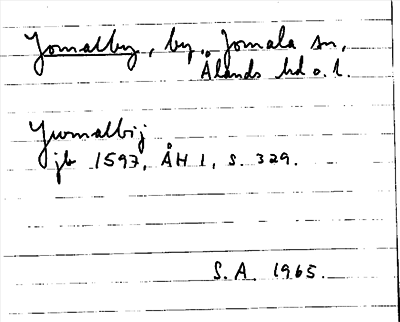 Jomalby, by, Jomala sn,
Ålands hd o. l.
Jwmalbij
jb 1597, ÅH 1, s. 329.
S. A. 1965.